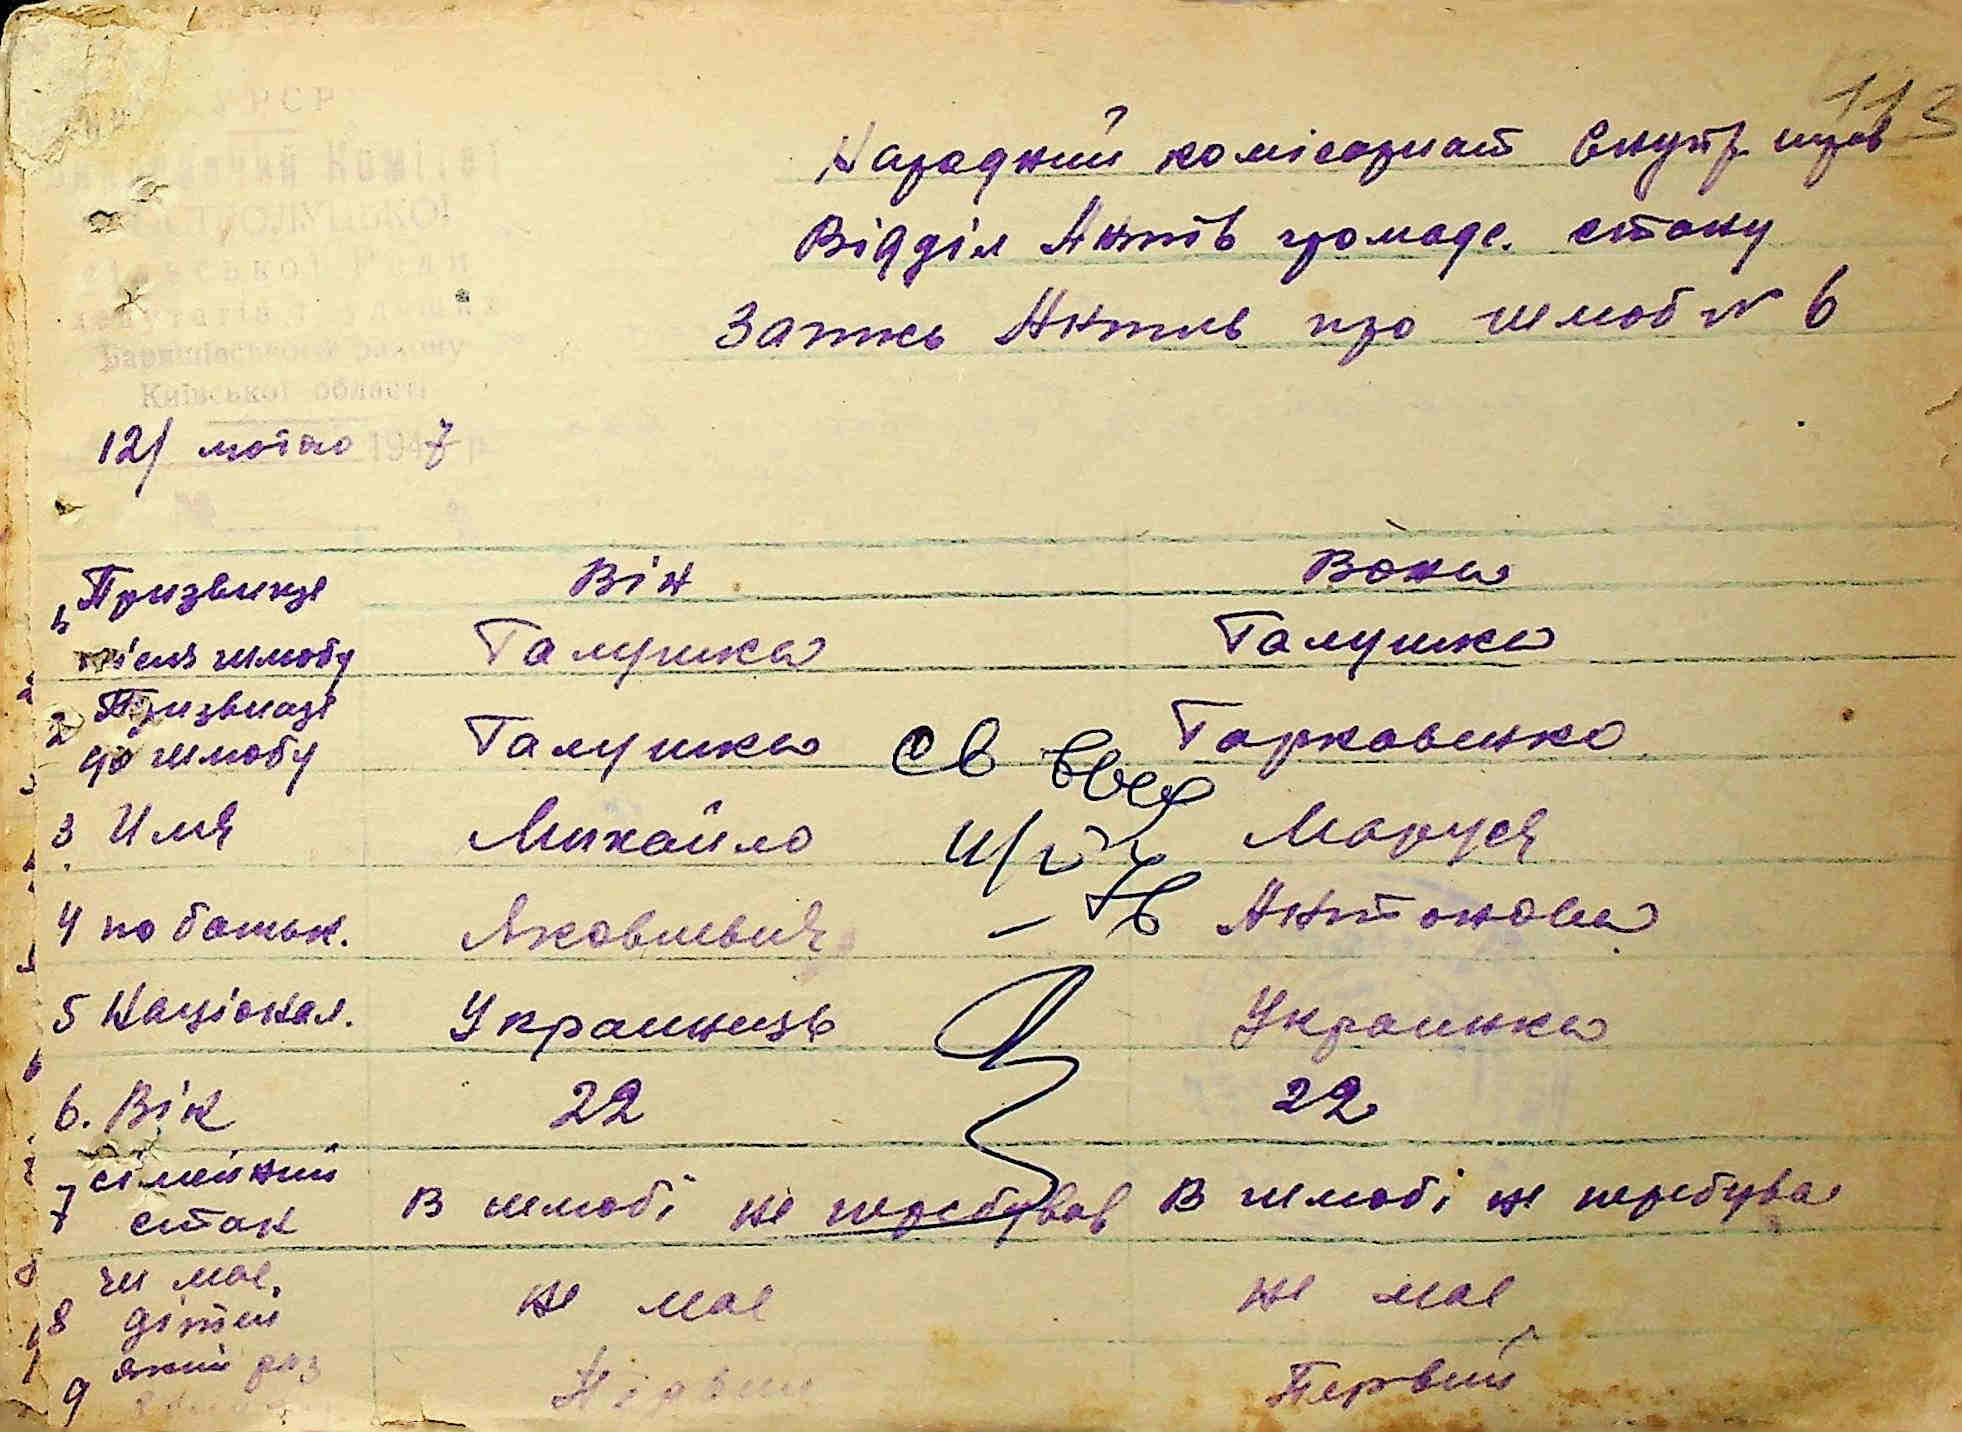 113
УРСР
Виконавчий Комітет
сільської Ради
депутатів трудящих
Баришівського району
Київської області
12/ 1947 р.
№
Народний комісариат Внутр. справ
Відділ Актів громадс. стану
Запись Актив про шлюб № 6
Він Вона
1 Призвище після шлюбу Галушка Галушка
2 Призвище до шлюбу Галушка Гарковенко
св
3 Имя Михайло Маруся
4 по батьк. Яковлевич Антонова
5 Націонал. Украинець Украинка
6. Вік 22 22
7 сімейний стан В шлюбі не перебував В шлюбі не перебувае
8 чи мае дітеи не мае не мае
9 який раз Первий